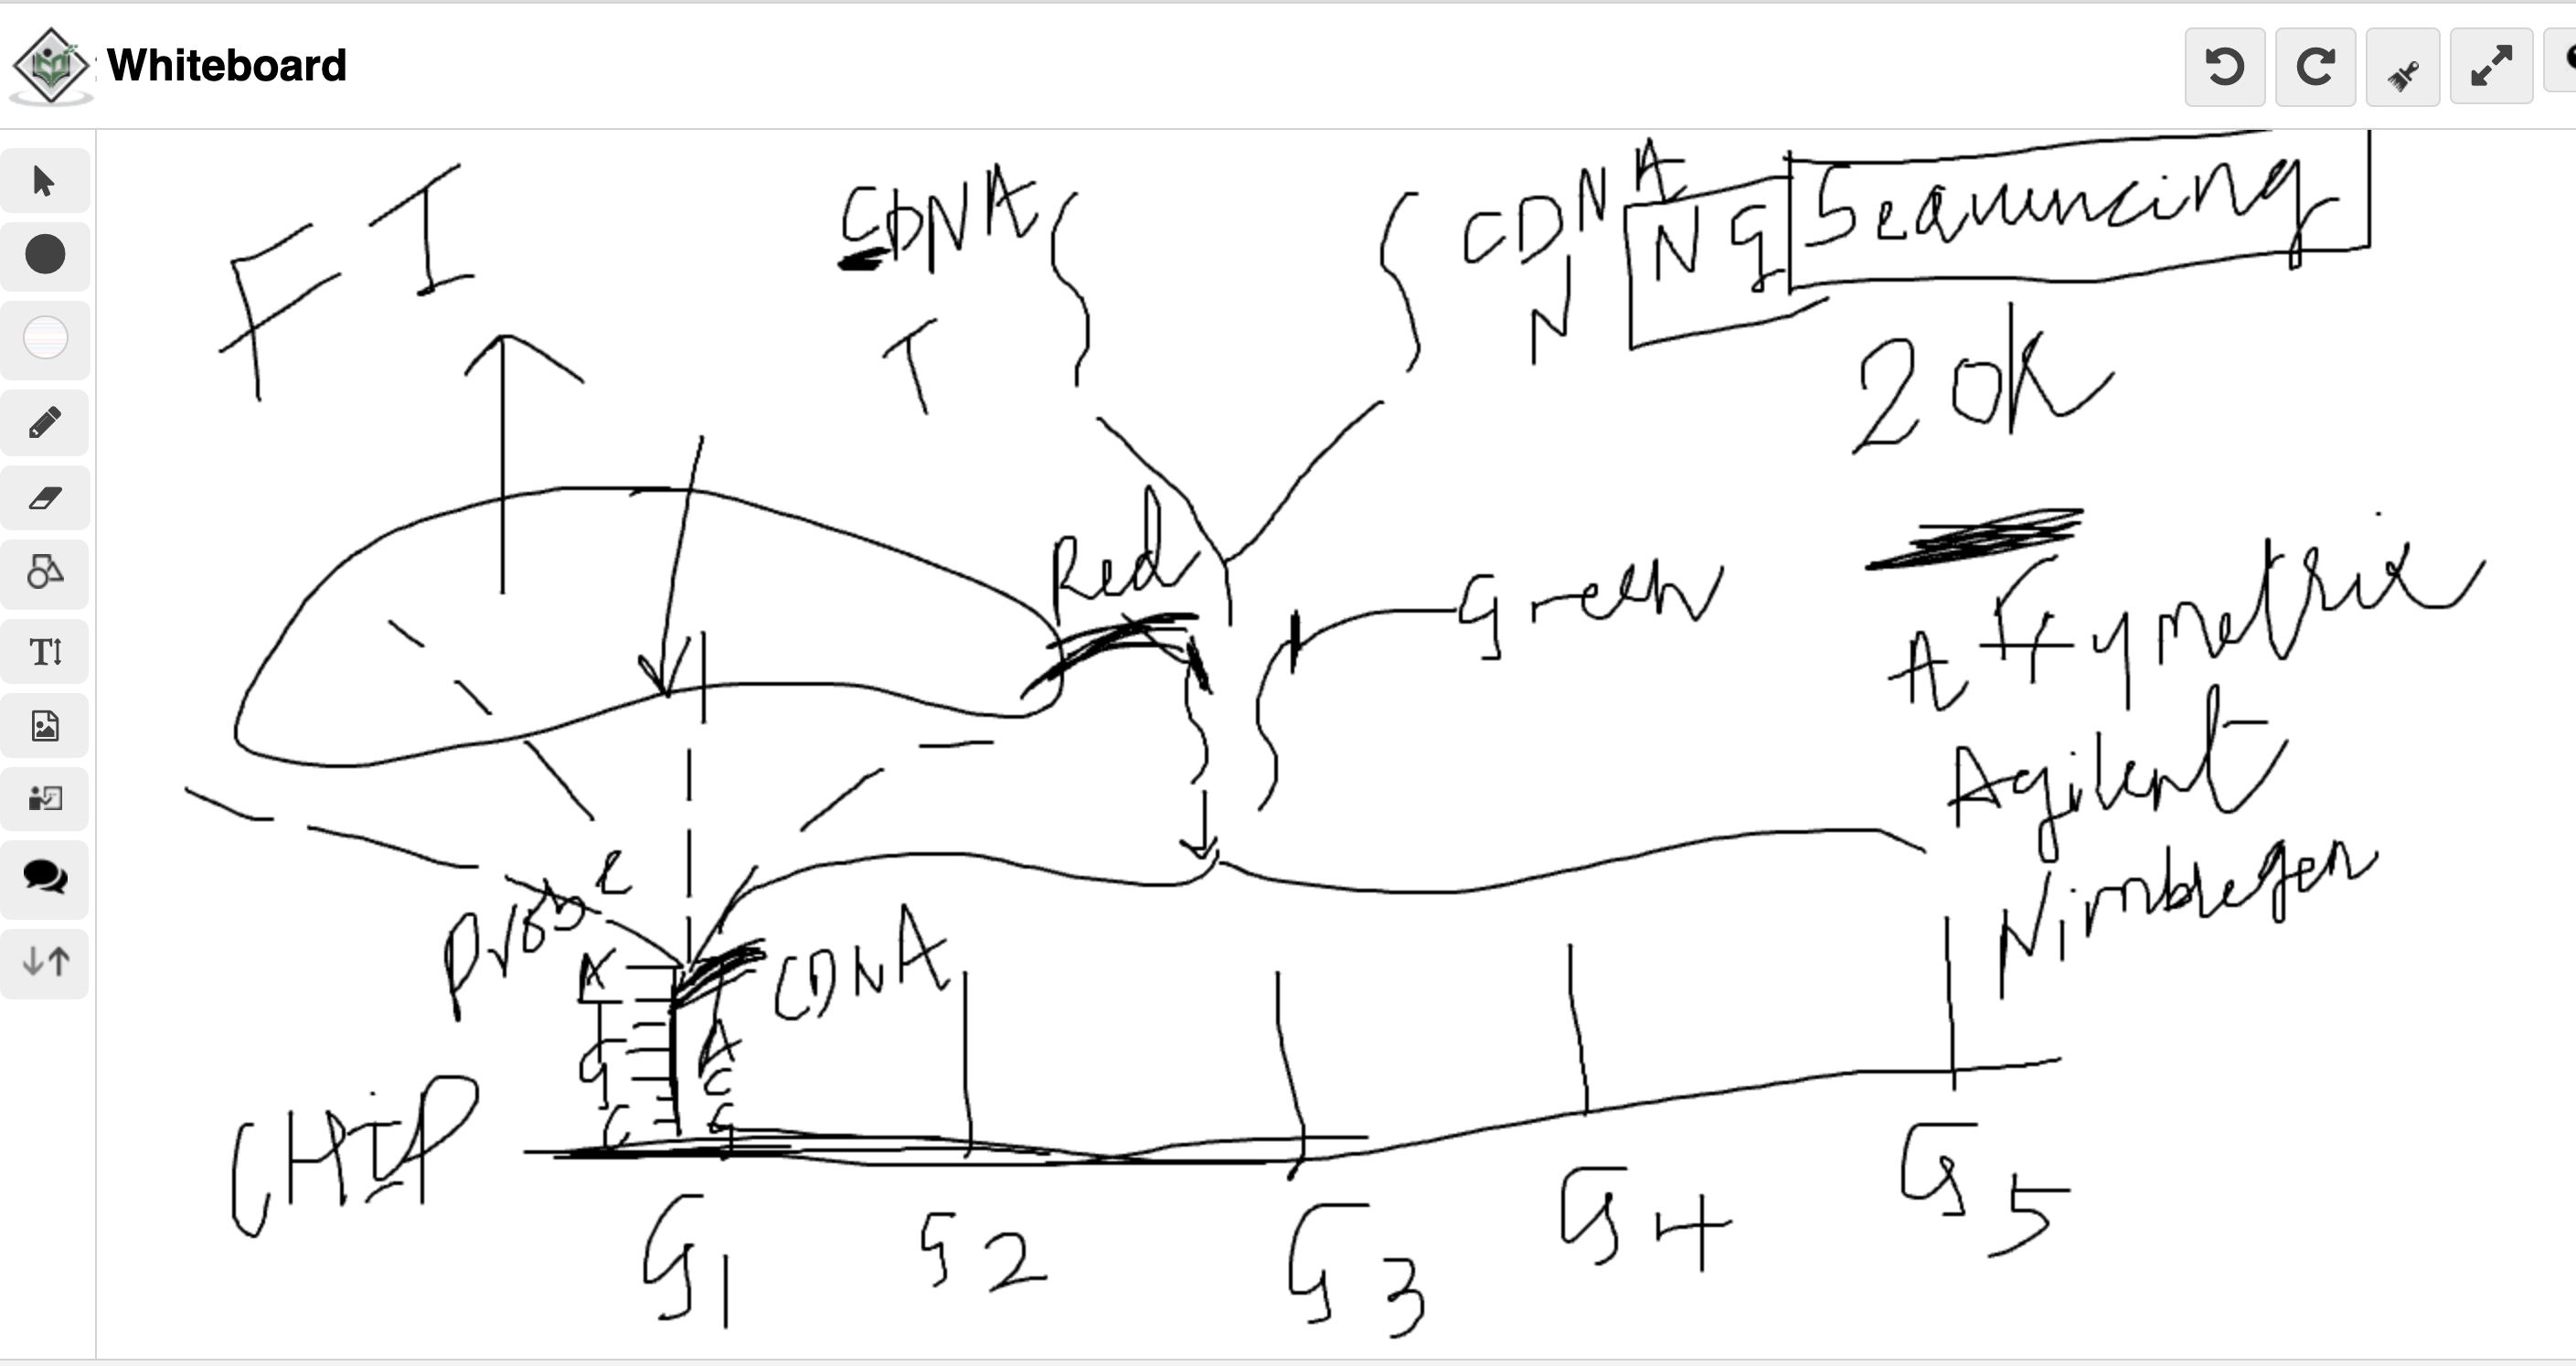 Whiteboard
FI
CDNA
T
CDNA
N
NG Sequencing
20K
Red
Green
Affymetrix
Agilent
Nimblegen
Probe
CDNA
A
T
G
C
A
C
G
CHIP
G1
G2
G3
G4
G5